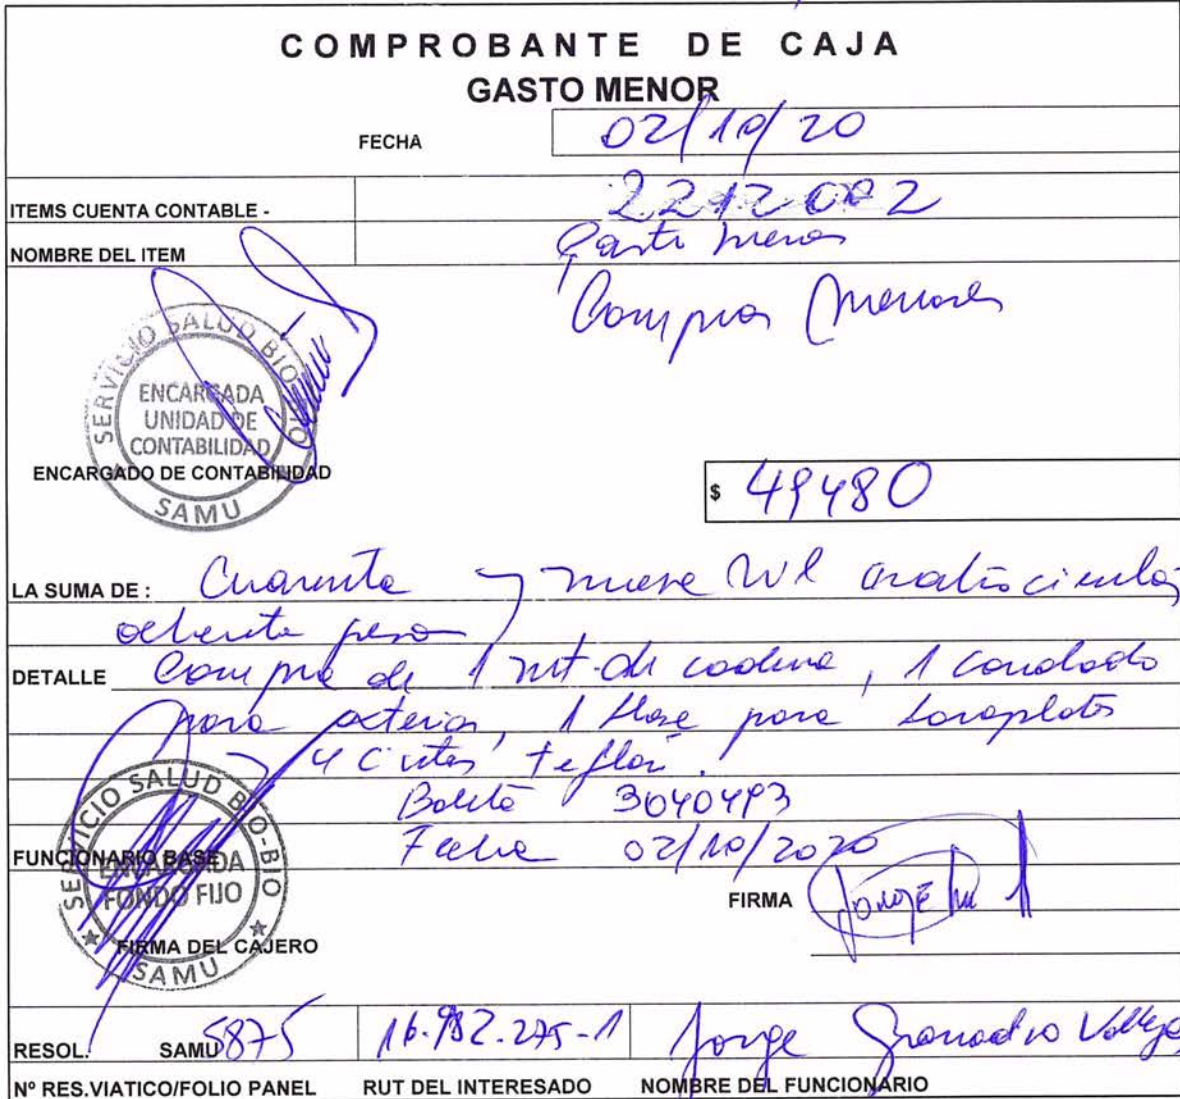 COMPROBANTE DE CAJA
GASTO MENOR
FECHA 02/10/20
ITEMS CUENTA CONTABLE - 2212002
NOMBRE DEL ITEM Gasto menor
Compras Menores
SERVICIO SALUD BIO-BIO
ENCARGADA
UNIDAD DE
CONTABILIDAD
SAMU
ENCARGADO DE CONTABILIDAD
$ 49480
LA SUMA DE : Cuarenta y nueve mil cuatrocientos
ochenta pesos
DETALLE Compra de 1 mt. de cadena, 1 candado
para exterior, 1 llave para
y 4 cintas teflón.
Boleta 3040493
Fecha 02/10/2020
FUNCIONARIO BASE
SERVICIO SALUD BIO-BIO
ENCARGADA
FONDO FIJO
SAMU
FIRMA Jorge
FIRMA DEL CAJERO
RESOL. SAMU 5875 16.982.275-1 Jorge Vallejos
Nº RES.VIATICO/FOLIO PANEL RUT DEL INTERESADO NOMBRE DEL FUNCIONARIO